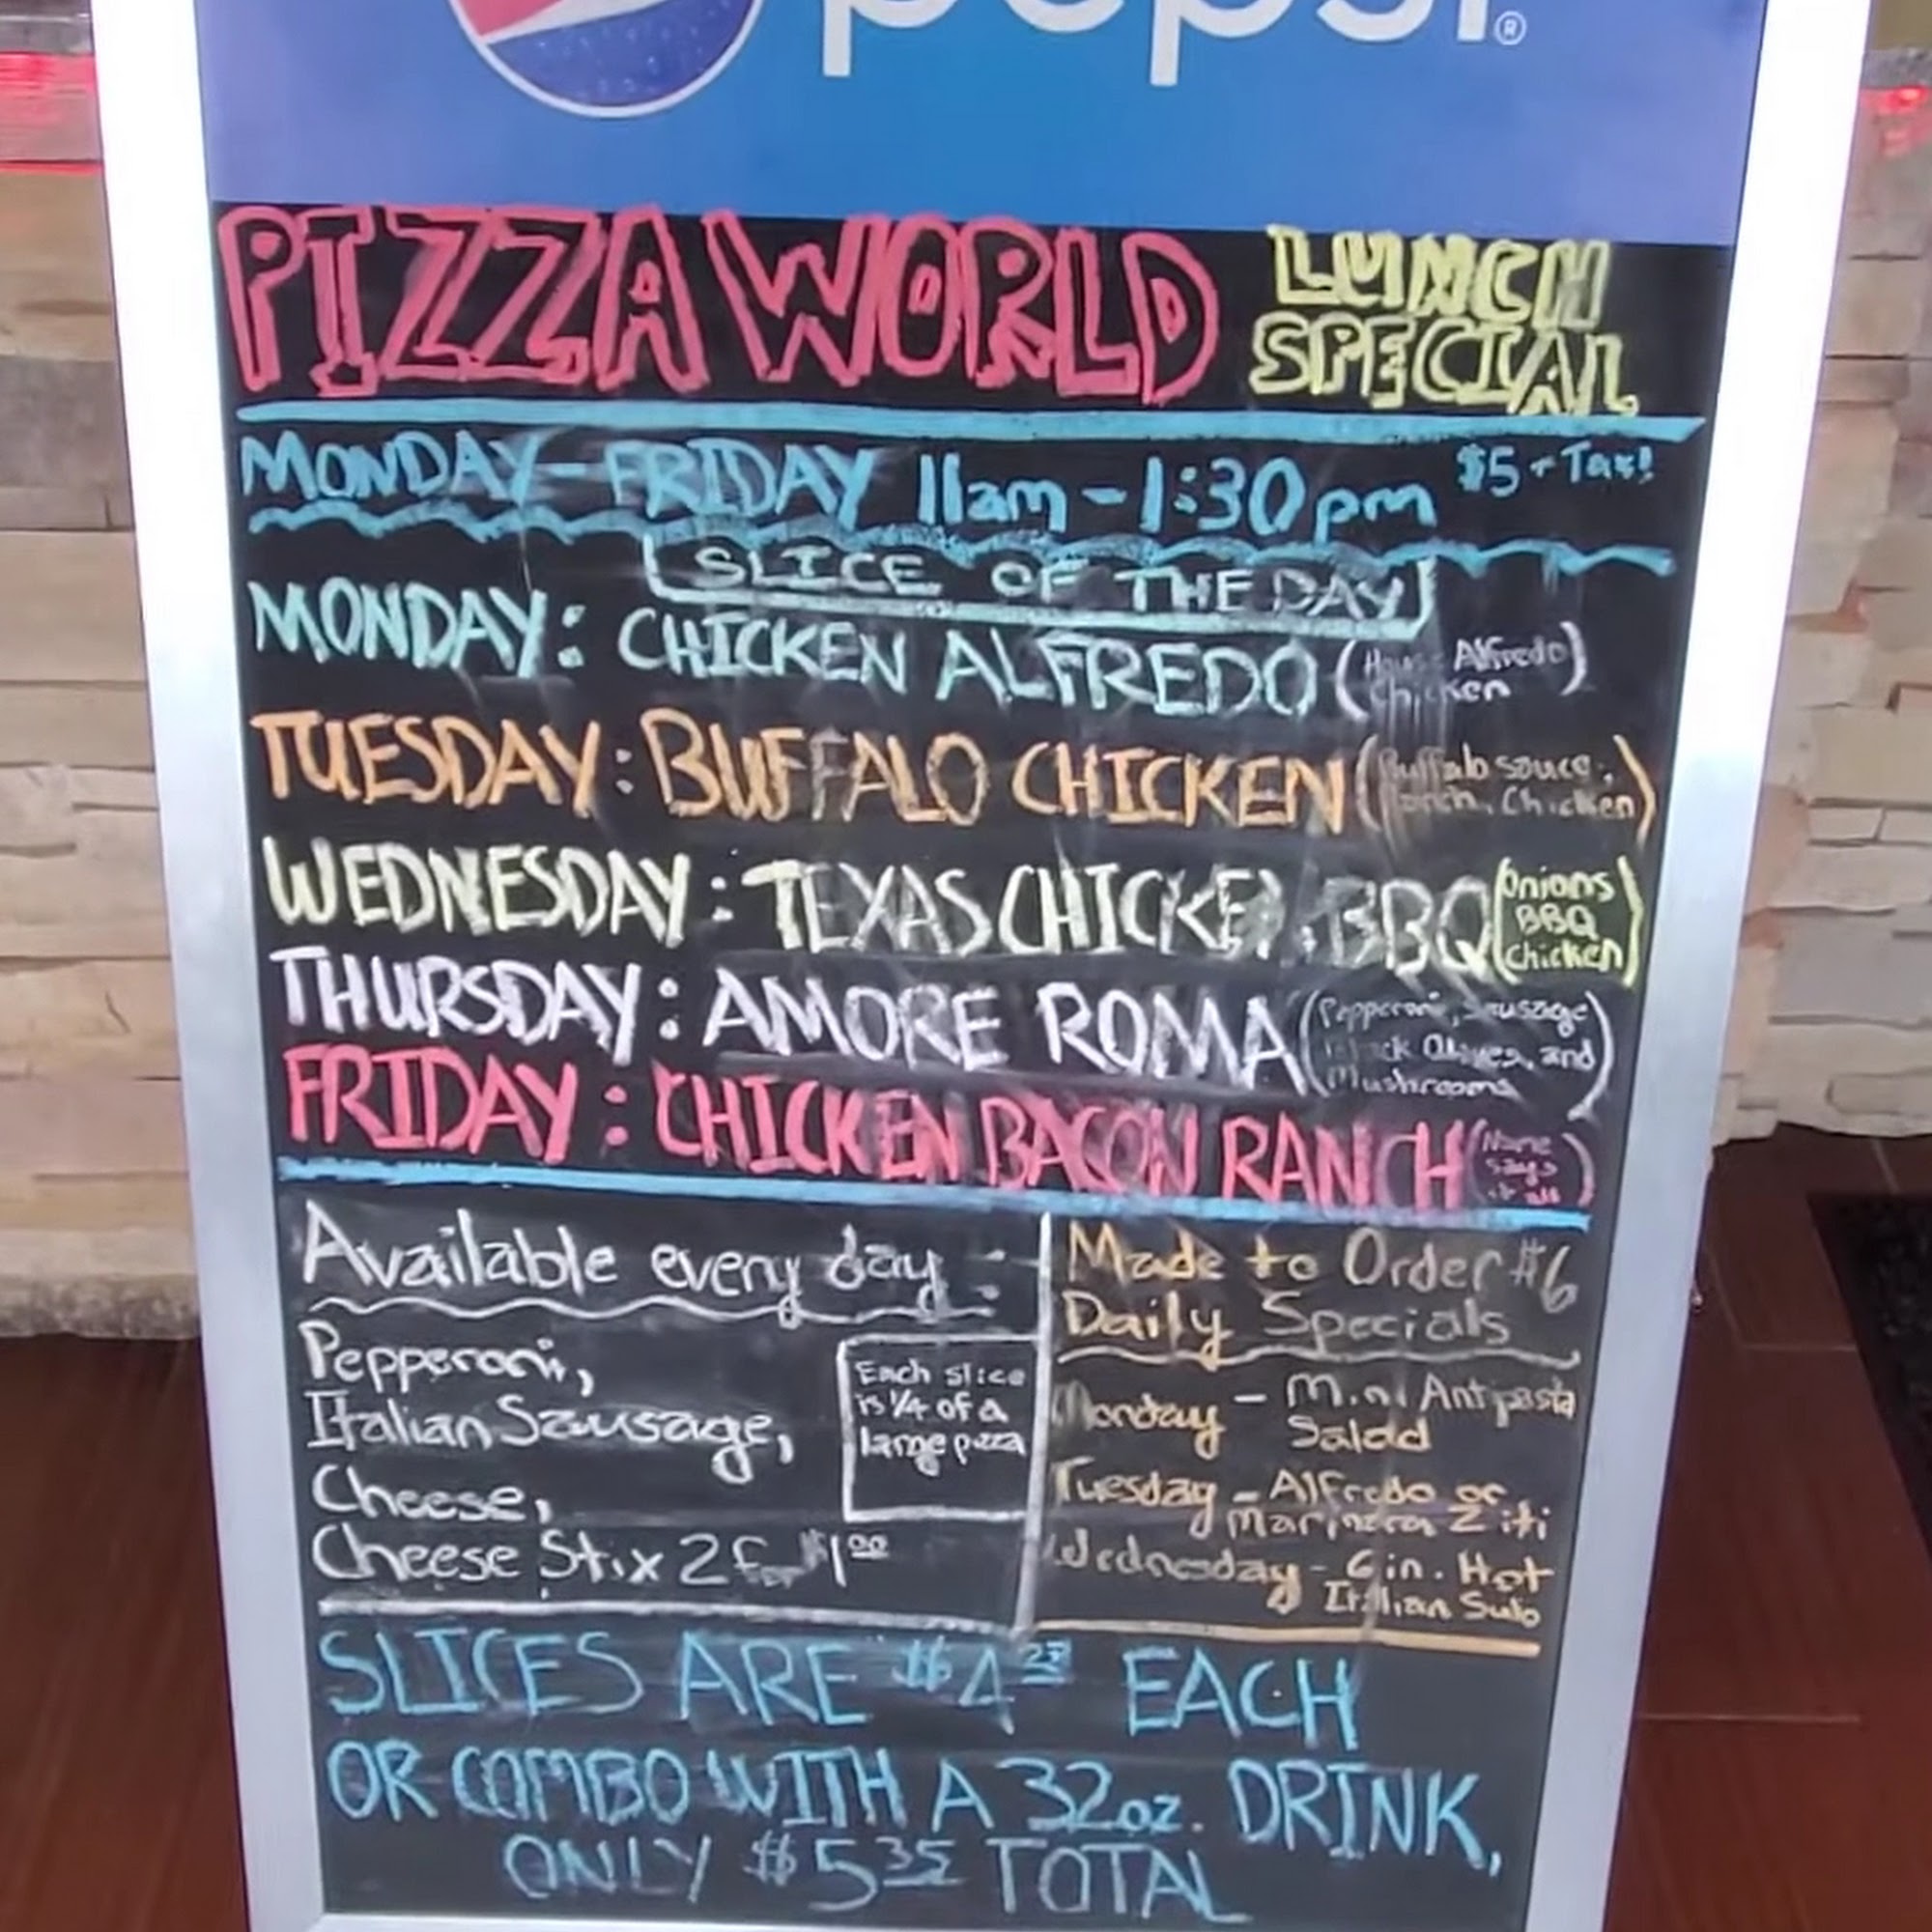 pepsi®
PIZZA WORLD LUNCH SPECIAL
MONDAY-FRIDAY 11am-1:30pm $5+Tax!
SLICE OF THE DAY
MONDAY: CHICKEN ALFREDO (House Alfredo
Chicken)
TUESDAY: BUFFALO CHICKEN (Buffalo sauce,
Ranch, Chicken)
WEDNESDAY: TEXAS CHICKEN BBQ (Onions
BBQ
Chicken)
THURSDAY: AMORE ROMA (Pepperoni, Sausage
Black Olives, and
Mushrooms)
FRIDAY: CHICKEN BACON RANCH (Name
says
it all)
Available every day:
Pepperoni,
Italian Sausage,
Cheese,
Cheese Stix 2 for $1.00
Each slice
is 1/4 of a
large pizza
Made to Order $6
Daily Specials
Monday - Mini Antipasta
Salad
Tuesday - Alfredo or
Marinara Ziti
Wednesday - 6 in. Hot
Italian Sub
SLICES ARE $4 EACH
OR COMBO WITH A 32oz. DRINK,
ONLY $5.35 TOTAL